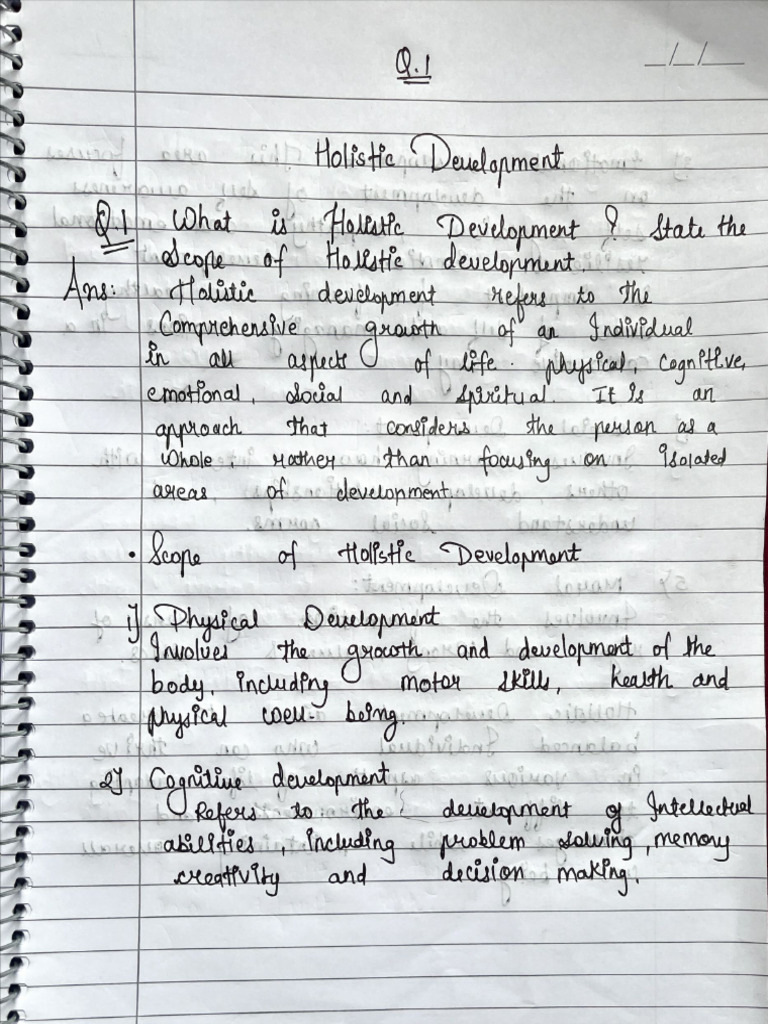 Q.1
_/_/__
Holistic Development
Q.1 What is Holistic Development ? State the
Scope of Holistic development.
Ans: Holistic development refers to the
Comprehensive growth of an Individual
in all aspects of life. physical, cognitive,
emotional, social and spiritual. It is an
approach that considers the person as a
whole, rather than focusing on isolated
areas of development.
• Scope of Holistic Development
1) Physical Development
Involves the growth and development of the
body, including motor skills, health and
physical well-being.
2) Cognitive development
Refers to the development of Intellectual
abilities, including problem solving, memory
creativity and decision making.